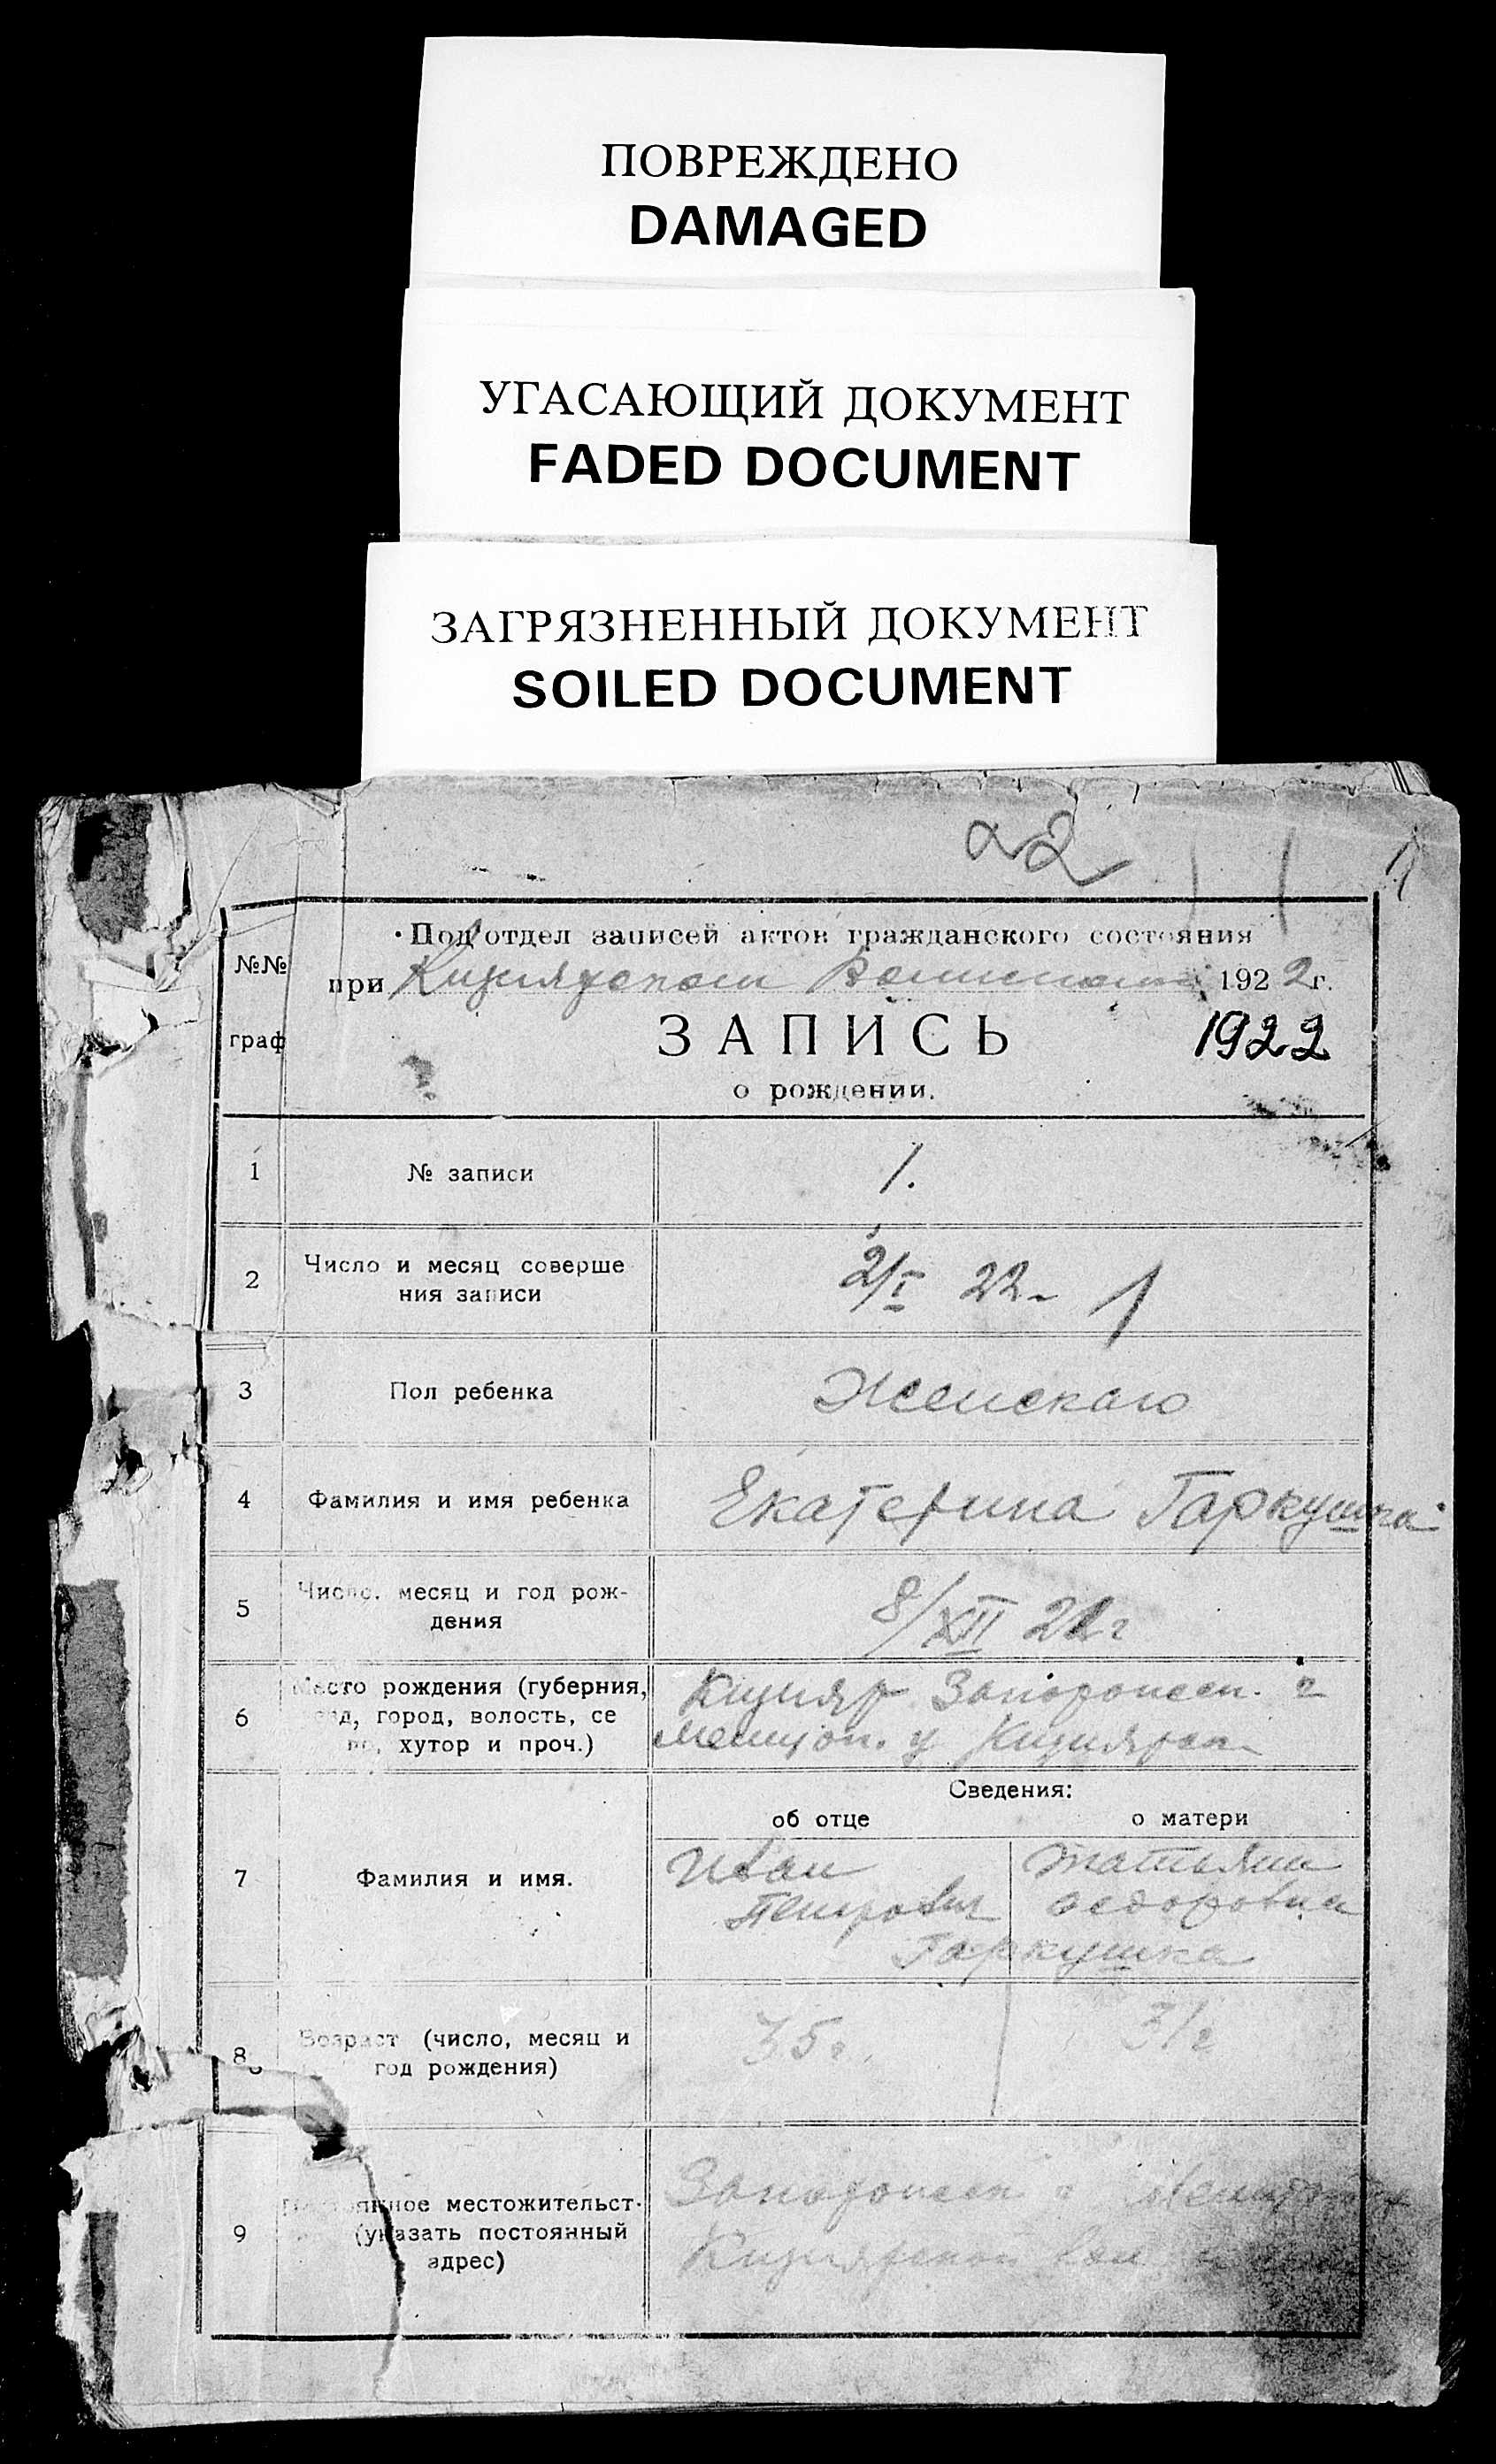 ПОВРЕЖДЕНО
DAMAGED
УГАСАЮЩИЙ ДОКУМЕНТ
FADED DOCUMENT
ЗАГРЯЗНЕННЫЙ ДОКУМЕНТ
SOILED DOCUMENT
1
Под'отдел записей актов гражданского состояния
№№ при Кизиярском 1922г.
граф ЗАПИСЬ 1922
о рождении.
1 № записи 1.
2 Число и месяц соверше
ния записи 2/I 22
3 Пол ребенка Женскаго
4 Фамилия и имя ребенка Екатерина Гаркушка
5 Число, месяц и год рож-
дения 8/XII 21г
6 Место рождения (губерния, Кизияр Запорожск. г
уезд, город, волость, се Мелитоп. у Кизиярск
ло, хутор и проч.)
Сведения:
об отце о матери
7 Фамилия и имя. Иван Татьяна
Петрович Федоровна
Гаркушка
8 Возраст (число, месяц и 35г. 31г
год рождения)
9 Постоянное местожительст- Запорожск г
(указать постоянный Кизиярской вол
адрес)